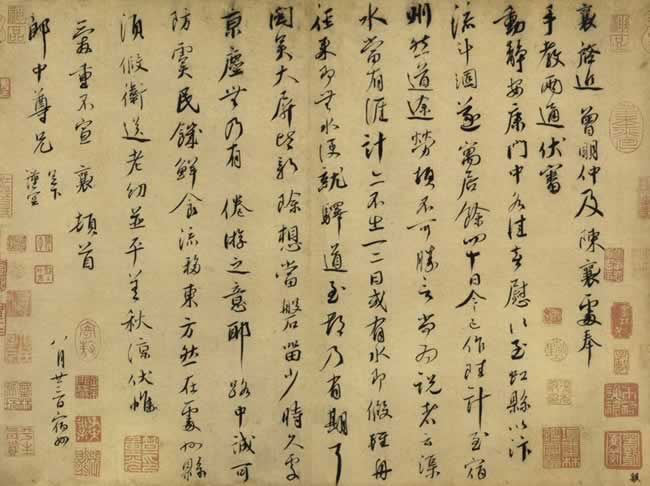 襄啓近曾明仲及陳襄處奉
手教兩通伏審
動靜安康門中各佳喜慰以至虹縣以汴
流斗涸遂寓居餘四十日今已作陸計至宿
州然道途勞頓不可勝言尚為說者云渠
水當有涯計亦不出一二日或有水即假輕舟
徑來即無水便就驛道至都乃有期耳
大屏皆新除想當磐留少時久處
京塵無乃有倦遊之意耶路中誠可
防虞民饑鮮食流移東方然在處州縣
須假衛送老幼並平善秋涼伏惟
愛重不宣襄頓首
郎中尊兄足下
謹空
八月廿三日宿州